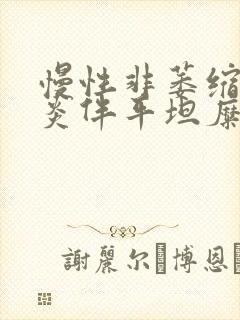 慢性非萎缩
炎伴平坦糜
謝麗尔·博恩